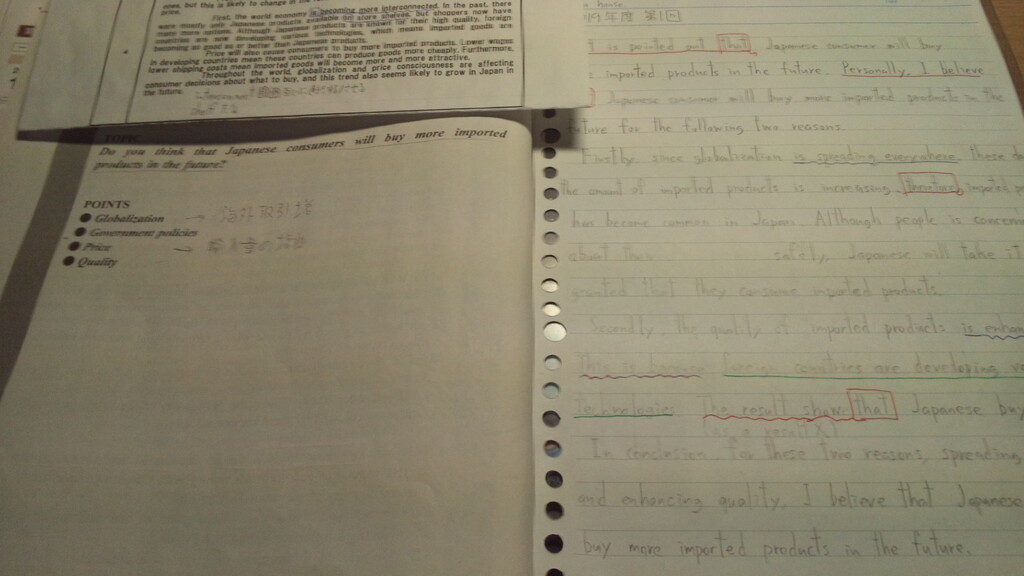 ones, but this is likely to change in the
price.
First, the world economy is becoming more interconnected. In the past, there
were mostly only Japanese products available on store shelves, but shoppers now have
many more options. Although Japanese products are known for their high quality, foreign
countries are now developing various technologies, which means imported goods are
becoming as good as or better than Japanese products.
Price will also cause consumers to buy more imported products. Lower wages
in developing countries mean these countries can produce goods more cheaply. Furthermore,
lower shipping costs mean imported goods will become more and more attractive.
Throughout the world, globalization and price consciousness are affecting
consumer decisions about what to buy, and this trend also seems likely to grow in Japan in
the future.
TOPIC
Do you think that Japanese consumers will buy more imported
products in the future?
POINTS
● Globalization → 海外取引増
● Government policies
● Price →
● Quality
house.
年度 第1回
is pointed out that Japanese consumer will buy
imported products in the future. Personally, I believe
Japanese consumer will buy more imported products in the
future for the following two reasons.
Firstly, since globalization is spending everywhere these
the amount of imported products is increasing. Therefore, imported
has become common in Japan. Although people is
about safety, Japanese will take it
granted that they consume imported products.
Secondly, the quality of imported products is
This is because foreign countries are developing
technologies. The result show that Japanese buy
(as a result X)
In conclusion, for these two reasons, spreading
and enhancing quality, I believe that Japanese
buy more imported products in the future.